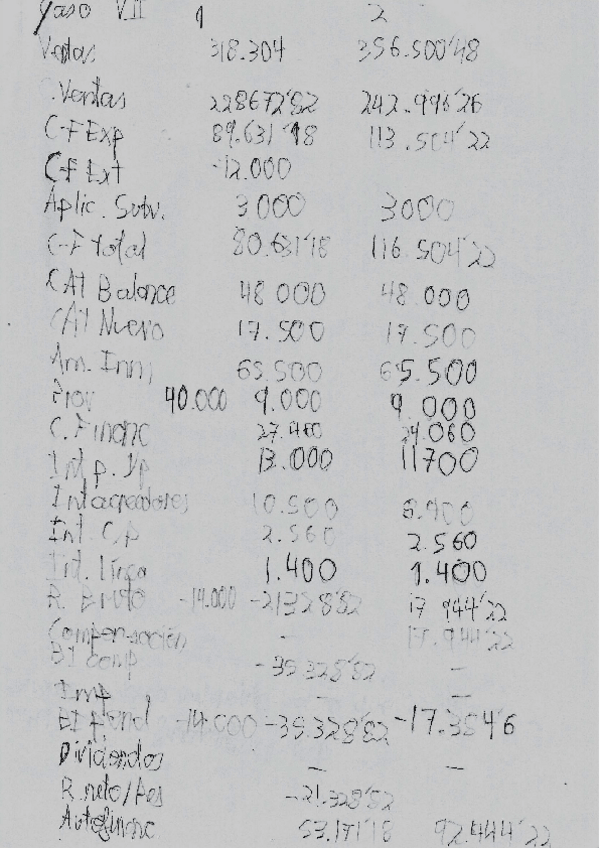 Caso VII 1 2
Ventas 318.304 356.500'48
C.Ventas 228672'82 242.996'26
C-F Exp 89.631'18 113.504'22
C-F Ext -12.000
Aplic. Subv. 3000 3000
C-F Total 80.631'18 116.504'22
CAI Balance 48 000 48.000
CAI Nuevo 17.500 17.500
Am. Inm 65.500 65.500
Prov 40.000 9.000 9.000
C. Financ 27.460
Int p. lp 13.000 11700
Int acreedores 10.500
Int C.p 2.560 2.560
Int. línea 1.400 1.400
R. Bruto -14.000 -21328'82 17 944'22
Compensación - 17.944'22
BI comp -35.328'82 -
Imp - -
BI fund -14.000 -35.328'82
Dividendos - -
R. neto/Res -21.328'82
Autofinanc 53.171'18 92.444'22